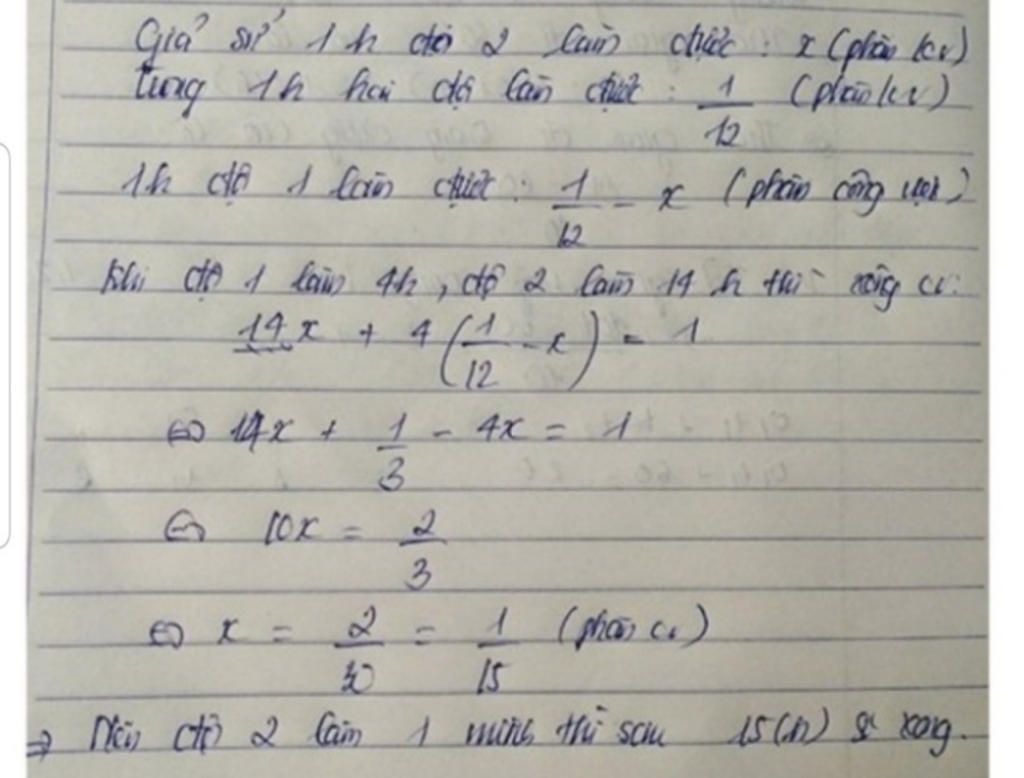 Giả sử 1h đội 2 làm được: x (phần cv)
Trong 1h hai đội làm được: 1/12 (phần cv)
1h đội 1 làm được: 1/12 - x (phần công việc)
Khi đội 1 làm 4h, đội 2 làm 14 h thì xong cv:
14x + 4(1/12 - x) = 1
⇔ 14x + 1/3 - 4x = 1
⇔ 10x = 2/3
⇔ x = 2/30 = 1/15 (phần cv)
⇒ Nên đội 2 làm 1 mình thì sau 15(h) sẽ xong.